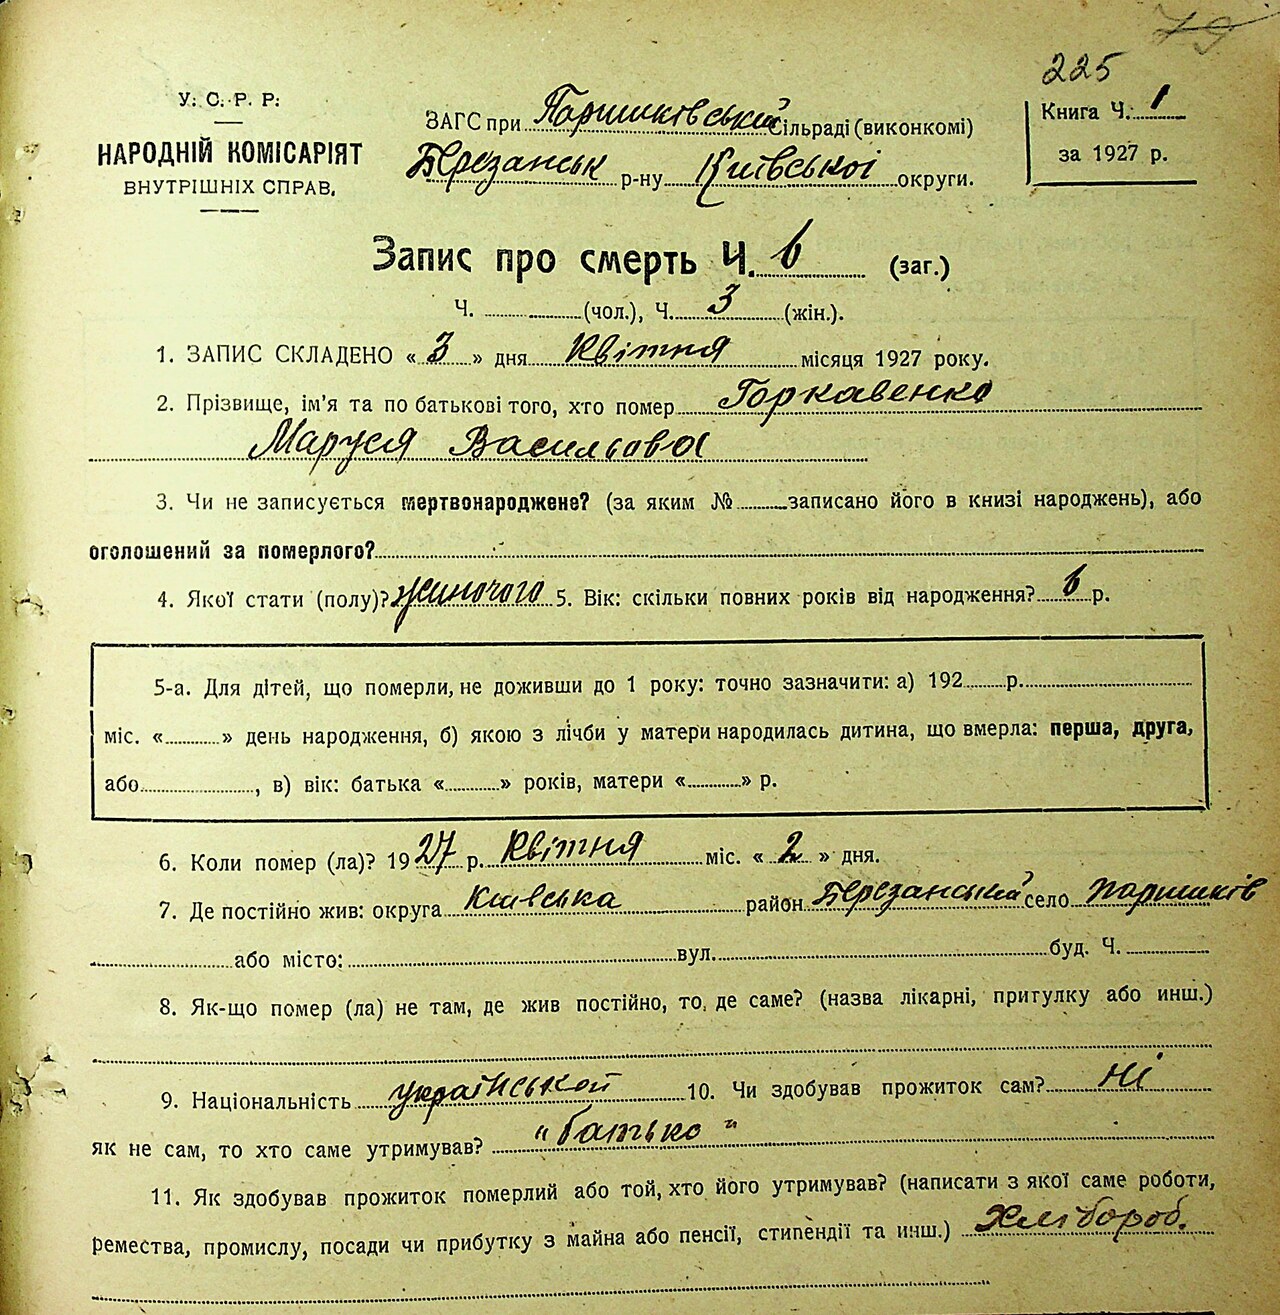 79
225
У. С. Р. Р.
НАРОДНІЙ КОМІСАРІЯТ
ВНУТРІШНІХ СПРАВ.
ЗАГС при Паришківський Сільраді (виконкомі)
Березанськ р-ну Київської округи.
Книга Ч. 1
за 1927 р.
Запис про смерть Ч. 6 (заг.)
Ч. (чол.), Ч. 3 (жін.).
1. ЗАПИС СКЛАДЕНО « 3 » дня Квітня місяця 1927 року.
2. Прізвище, ім'я та по батькові того, хто помер Горкавенко
Маруся Васильова
3. Чи не записується мертвонароджене? (за яким № записано його в книзі народжень), або
оголошений за померлого?
4. Якої стати (полу)? жиночого 5. Вік: скільки повних років від народження? 6 р.
5-а. Для дітей, що померли, не доживши до 1 року: точно зазначити: а) 192 р.
міс. « » день народження, б) якою з лічби у матери народилась дитина, що вмерла: перша, друга,
або , в) вік: батька « » років, матери « » р.
6. Коли помер (ла)? 1927 р. Квітня міс. « 2 » дня.
7. Де постійно жив: округа Київська район Березанський село Паришків
або місто: вул. буд. Ч.
8. Як-що помер (ла) не там, де жив постійно, то, де саме? (назва лікарні, притулку або инш.)
9. Національність української 10. Чи здобував прожиток сам? ні
як не сам, то хто саме утримував? "батько"
11. Як здобував прожиток померлий або той, хто його утримував? (написати з якої саме роботи,
ремества, промислу, посади чи прибутку з майна або пенсії, стипендії та инш.) Хлібороб.